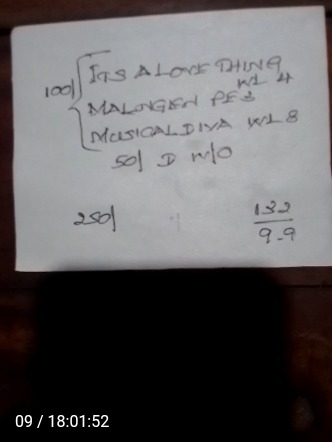 100/
ITS A LOVE THING
WL 4
MALINGEN PE 3
MUSICAL DIVA WL 8
50/ D W/O
250/
132
9-9
09 / 18:01:52